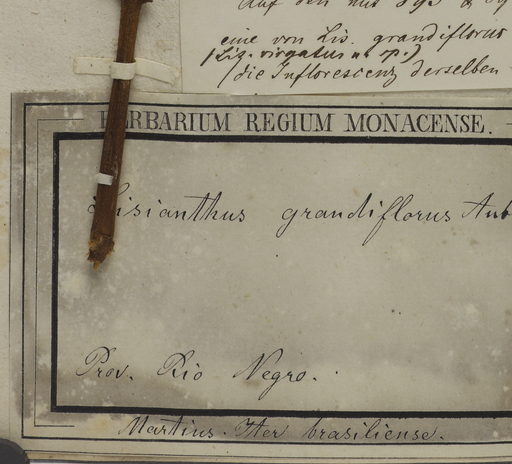 Auf den mit
eine von Lis. grandiflorus
(Lis. virgatus n. sp.)
die Inflorescenz derselben
HERBARIUM REGIUM MONACENSE.
Lisianthus grandiflorus Aubl
Prov. Rio Negro.
Martius. Iter brasiliense.